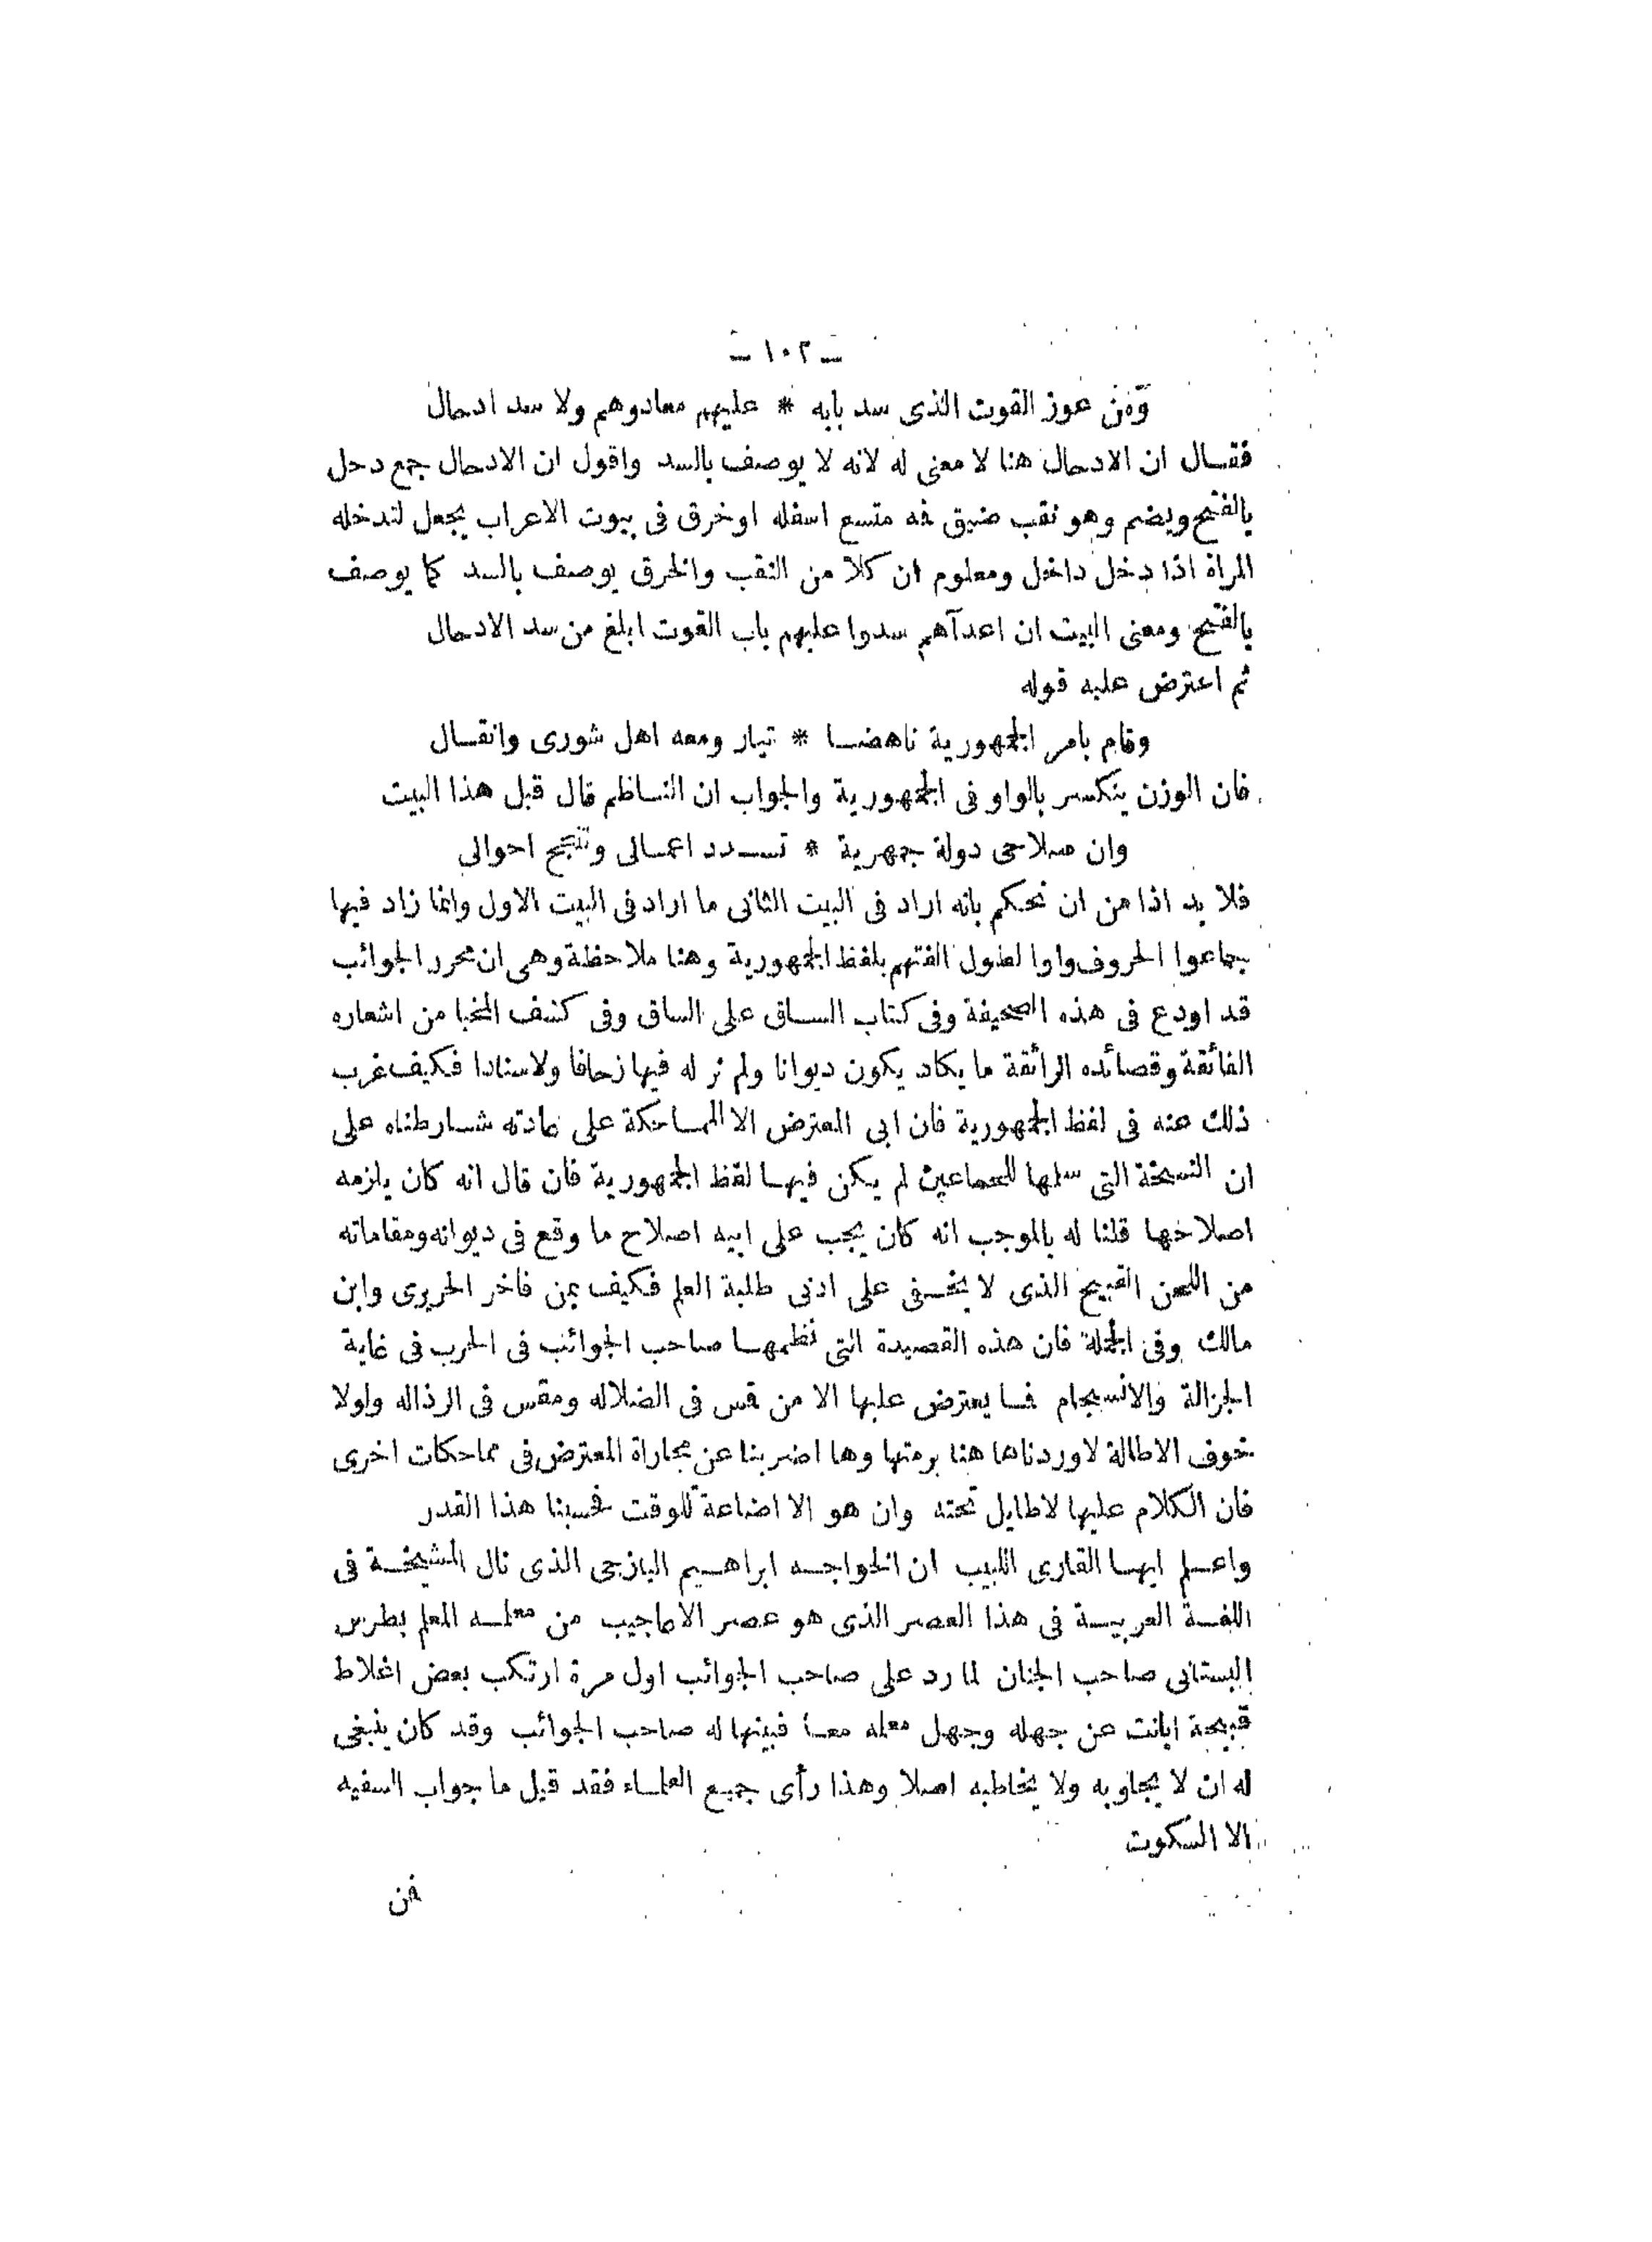 ـ ١٠٢ ـ
ومن عوز القوت الذى سد بابه * عليهم معادوهم ولا سد ادحال
فقال ان الادحال هنا لا معنى له لانه لا يوصف بالسد واقول ان الادحال جمع دحل
بالفتح ويضم وهو نقب ضيق فه متسع اسفله او خرق فى بيوت الاعراب يجعل لتدخله
المراة اذا دخل داخل ومعلوم ان كلا من النقب والخرق يوصف بالسد كما يوصف
بالفتح ومعنى البيت ان اعدآهم سدوا عليهم باب القوت ابلغ من سد الادحال
ثم اعترض عليه قوله
وقام بامر الجمهورية ناهضا * تيار ومعه اهل شورى وانقال
فان الوزن ينكسر بالواو فى الجمهورية والجواب ان الناظم قال قبل هذا البيت
وان صلاحى دولة جمهرية * تسدد اعمالى وتنجح احوالى
فلا بد اذا من ان نحكم بانه اراد فى البيت الثانى ما اراد فى البيت الاول وانما زاد فيها
جماعوا الحروف واوا لطول الفتهم بلفظ الجمهورية وهنا ملاحظة وهى ان محرر الجوائب
قد اودع فى هذه الصحيفة وفى كتاب الساق على الساق وفى كشف المخبا من اشعاره
الفائقة وقصائده الرائقة ما يكاد يكون ديوانا ولم نر له فيها زحافا ولا سنادا فكيف غرب
ذلك عنه فى لفظ الجمهورية فان ابى المعترض الا المماحكة على عادته شارطناه على
ان النسخة التى سلمها للجماعين لم يكن فيها لفظ الجمهورية فان قال انه كان يلزمه
اصلاحها قلنا له بالموجب انه كان يجب على ابيه اصلاح ما وقع فى ديوانه ومقاماته
من اللحن القبيح الذى لا يخفى على ادنى طلبة العلم فكيف بمن فاخر الحريرى وابن
مالك وفى الجملة فان هذه القصيدة التى نظمها صاحب الجوائب فى الحرب فى غاية
الجزالة والانسجام فما يعترض عليها الا من قس فى الضلاله ومقس فى الرذاله ولولا
خوف الاطالة لاوردناها هنا برمتها وها اضربنا عن مجاراة المعترض فى مماحكات اخرى
فان الكلام عليها لاطايل تحته وان هو الا اضاعة للوقت فحسبنا هذا القدر
واعلم ايها القارى اللبيب ان الخواجه ابراهيم اليازجى الذى نال المشيخة فى
اللغة العربية فى هذا العصر الذى هو عصر الاعاجيب من معلمه المعلم بطرس
البستانى صاحب الجنان لما رد على صاحب الجوائب اول مرة ارتكب بعض اغلاط
قبيحة ابانت عن جهله وجهل معلمه معا فبينها له صاحب الجوائب وقد كان ينبغى
له ان لا يجاوبه ولا يخاطبه اصلا وهذا رأى جميع العلماء فقد قيل ما جواب السفيه
الا السكوت
فن